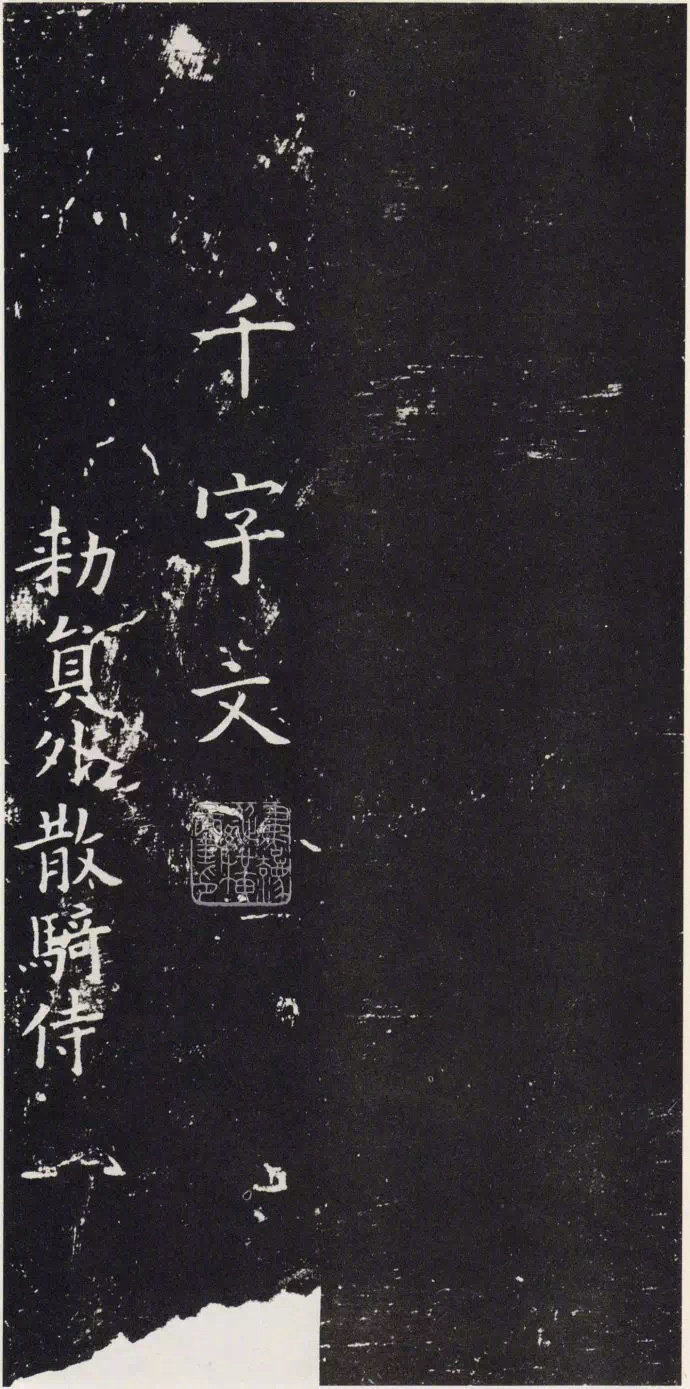 千字文
勑員外散騎侍